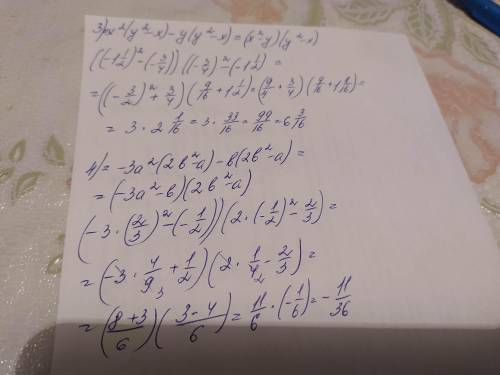 3) x²(y²-x)-y(y²-x)=(x²-y)(y²-x)
((-1 1/2)²-(-3/4))((-3/4)²-(-1 1/2)=
=((-3/2)²+3/4)(9/16+1 1/2)=(9/4+3/4)(9/16+1 8/16)=
= 3·2 1/16=3·33/16=99/16=6 3/16
4) = -3a²(2b²-a)-b(2b²-a)=
=(-3a²-b)(2b²-a)
(-3·(2/3)²-(-1/2))(2·(-1/2)²-2/3)=
=(-3·4/9+1/2)(2·1/4-2/3)=
=(8+3/6)(3-4/6)=11/6·(-1/6)=-11/36